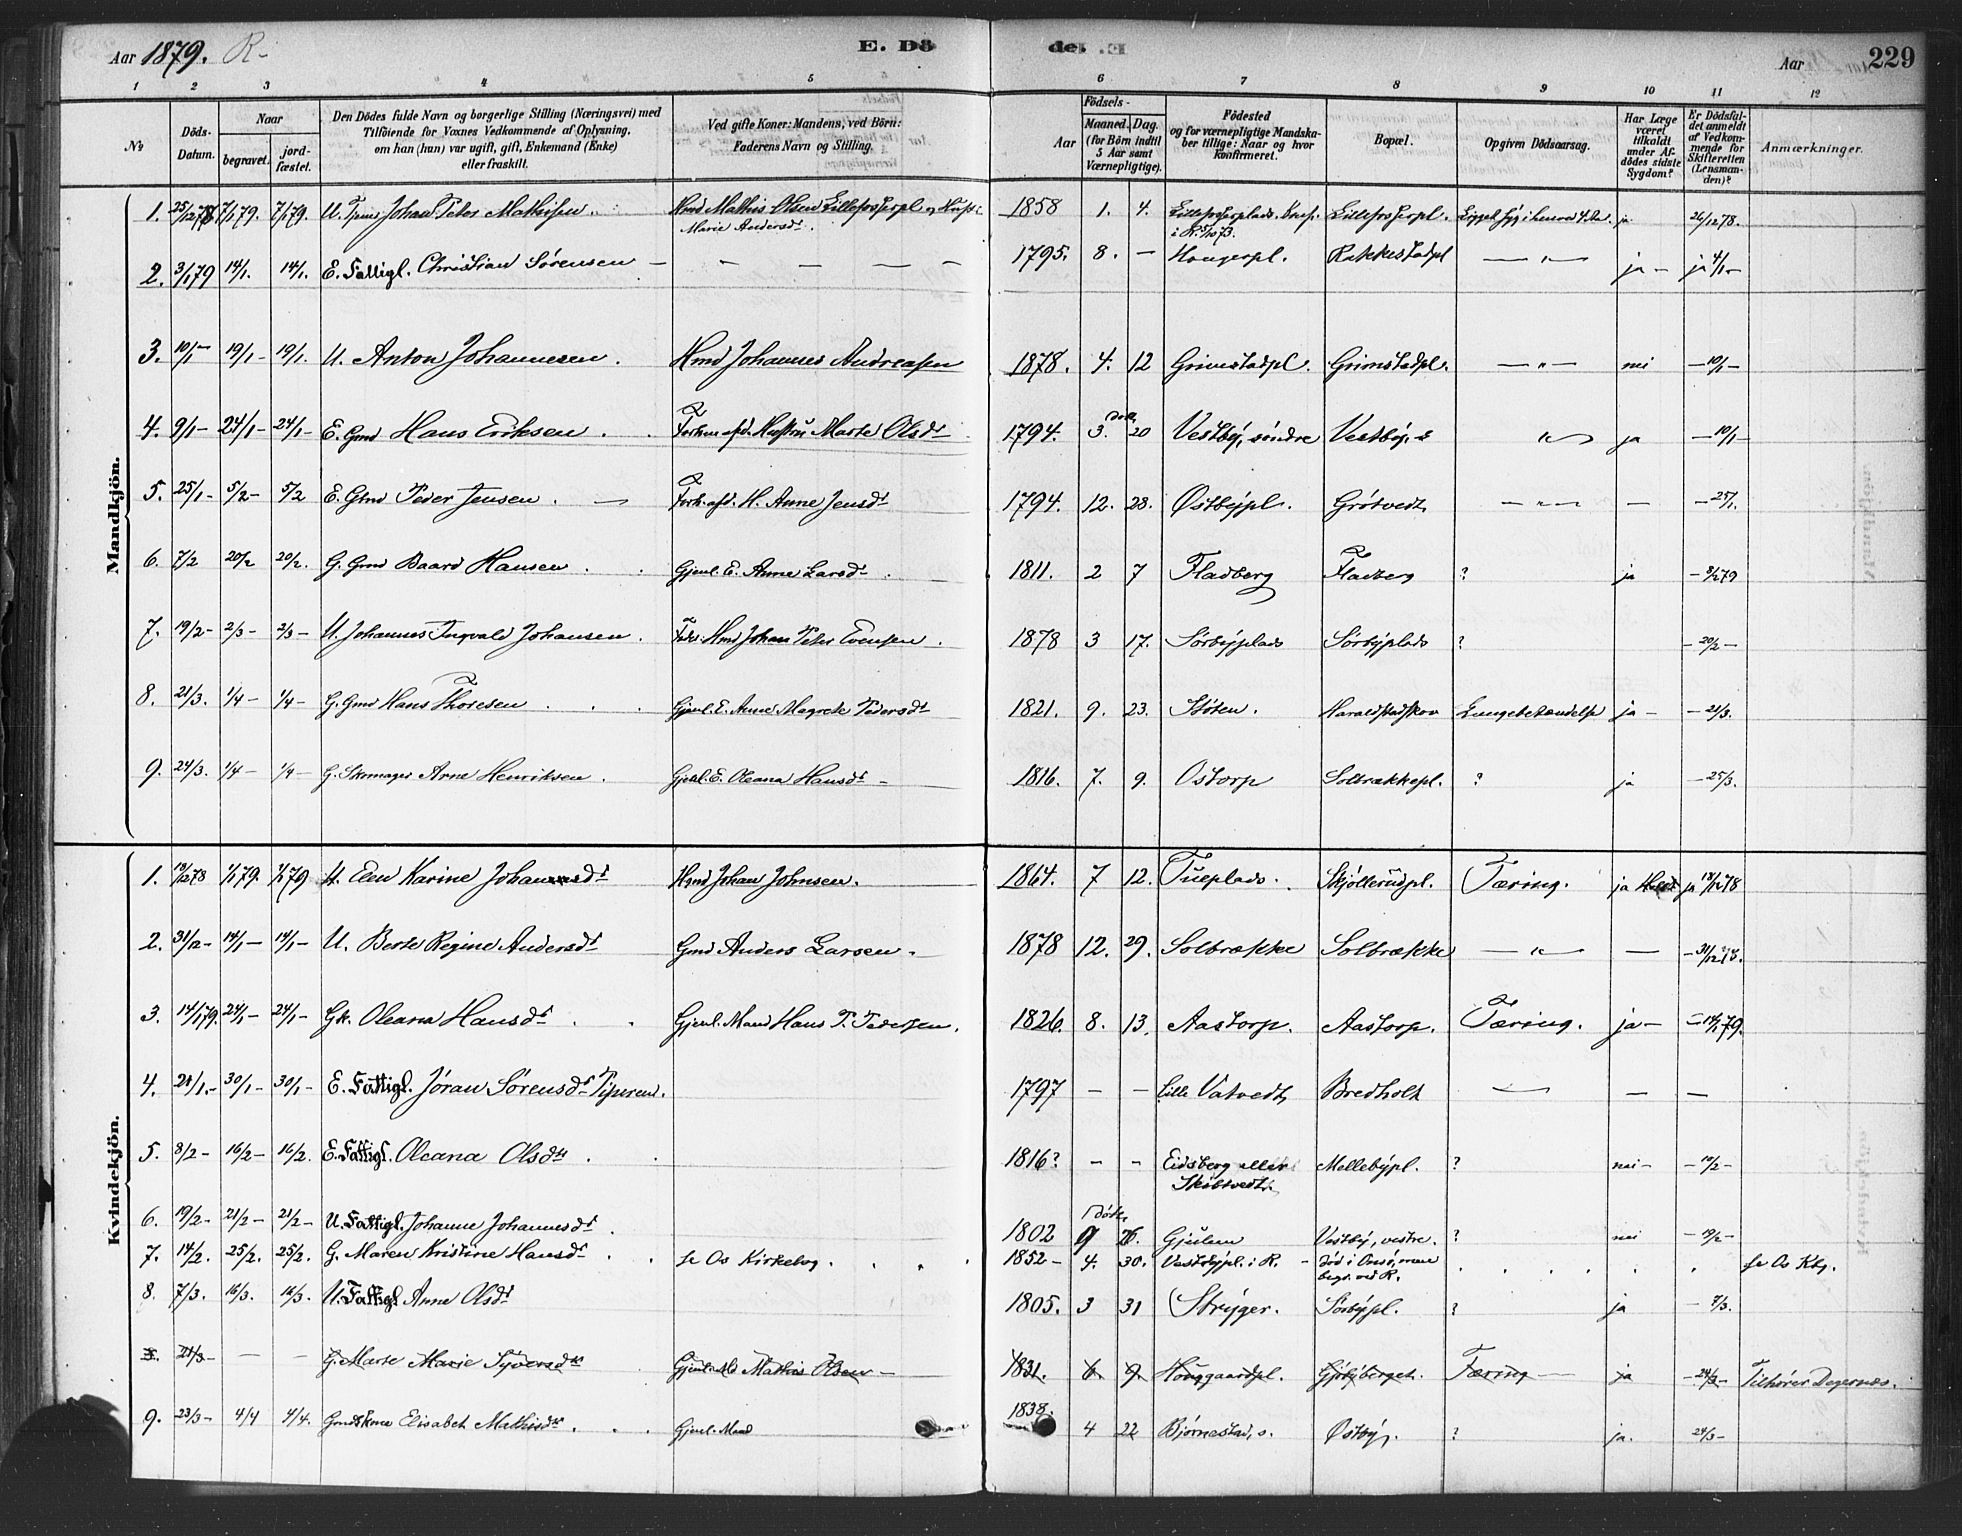 Aar 1879. R- E. Dö de. E Aar 229
1 2 3 4 5 6 7 8 9 10 11 12
No Döds-Datum. Naar begravet. jord-fæstet. Den Dödes fulde Navn og borgerlige Stilling (Næringsvei) med Tilföiende for Voxnes Vedkommende af Oplysning, om han (hun) var ugift, gift, Enkemand (Enke) eller fraskilt. Ved gifte Koner: Mandens, ved Börn: Faderens Navn og Stilling. Aar Födsels- Maaned. Dag. (for Börn indtil 5 Aar samt Værnepligtige). Födested og for værnepligtige Mandskaber tillige: Naar og hvor Konfirmeret. Bopæl. Opgiven Dödsaarsag. Har Læge været tilkaldt under Afdödes sidste Sygdom? Er Dödsfaldet anmeldt af Vedkommende for Skifteretten (Lensmanden)? Anmærkninger.
Mandkjön.
1. 25/12 78 7/1 79. 7/1 79. U. Johan Peter Mathisen. Hmd Mathis Olsen og Hust: 1858 1. 4. ja 26/12 78.
Marie Andersdt.
2. 3/1 79 14/1. 14/1. E. Fattigl. Christian Sörensen — — — — — 1795. 8. — Haugerpl. Rakkestadpl — " — ja — ja 4/1 —
3. 10/1 — 19/1 — 19/1. U. Anton Johannesen. Hmd Johannes Andreasen 1878. 4. 12 Grimstadpl. Grimstadpl. — " — nei — 10/1 —
4. 9/1 — 24/1 — 24/1 — E. Gmd Hans Eriksen. Forhen afd. Hustru Marte Olsdt 1794. 3. döbt 20 Vestby, söndre Vestby, s — " — ja — 10/1 —
5. 25/1 — 5/2 — 5/2 E. Gmd Peder Jensen. — Forh. afd. H. Anne Jensdt 1794. 12. 28. Østbypl. Grötvedt — " — — — 25/1.
6. 7/2 20/2 20/2. G. Gmd Baard Hansen. Gjenl. E. Anne Larsdt. 1811. 2 7 Fladberg Fladberg ? ja — 8/2 79
7. 19/2 — 2/3 — 2/3 — U. Johannes Ingvald Johansen. Fader: Hmd Johan Peter Evensen. 1878 3 17. Sörbyplads Sörbyplads ? — 20/2 —
8. 21/3. 1/4 — 1/4 — G. Gmd Hans Thoresen. Gjenl. E. Anne Magrete Pedersdt 1821. 9. 23. Stöten. Haraldstadskov Lungebetændelse ja — — 21/3.
9. 24/3. 1/4 — 1/4 — G. Skomager Arne Henriksen. Gjenl. E. Oleana Hansdt — 1816. 7. 9. Ostorp Solbrækkepl. ? ja — 25/3.
Kvindekjön.
1. 18/12 78 1/1 79. 1/1 79 U. Elen Karine Johannesdt Hmd Johan Johnsen. 1864. 7 12. Tueplads. Skjöllerudpl. Tæring. ja ja 18/12 78
2. 31/12 — 14/1 — 14/1 — U. Berte Regine Andersdt Gmd Anders Larsen. 1878 12. 29. Solbrække Solbrække — " — — — 31/12 78.
3. 14/1 79. 24/1 — 24/1 — Gk. Oleana Hansdt. Gjenl. Mand Hans P. Pedersen. 1826. 8. 13. Aastorp. Aastorp. Tæring. ja — — 14/1 79.
4. 21/1. — 30/1 — 30/1 — E. Fattigl. Jöran Sörensdt Piperen. 1797 — — Lille Vatvedt Bredholt — — —
5. 8/2 — 16/2 — 16/2. E. Fattigl. Oleana Olsdt. 1816? — — Eidsberg eller Mellebypl. ? nei — — 10/2 —
Skibtvedt.
6. 19/2 — 21/2 — 21/2 — U. Fattigl. Johanne Johannesdt. 1802 9 Döbt 26. Gjulem Vestby, vestre. ? nei — 19/2 —
7. 14/2. 25/2. 25/2. G. Maren Kristine Hansdt. se Os Kirkebog. 1852 — 4. 30. Vestbypl. i R. — död i Onsö, men se Os Kbg.
begr. ved R.
8. 7/3. 16/3. 16/3. U. Fattigl Anne Olsdt 1805. 3 31 Stryger. Sörbypl. ? ja — 7/3.
21/3 — — — G. Marte Marie Syversdt Gjenl. Md Mathis Olsen — 1831. 6 9. Houggaardpl. Gjöbyberget. Tæring — ja — 24/3 — Tilhörer Degernæs.
9. 23/3 — 4/4 4/4. Gmdskone Elisabet Mathisdt. Gjenl. Mand 1838. 4 22 Björnestad, s. Østby. ? ja. 24/3 —